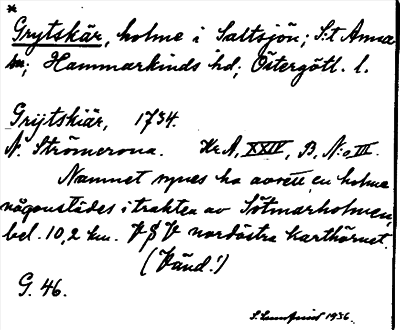 *
Grytskär, holme i Saltsjön; S:t Anna
sn; Hammarkinds hd; Östergötl. l.
Grijtskiär, 1734.
N. Strömcrona. Kr. A, XXIV, B, N:o III.
Namnet synes ha avsett en holme
någonstädes i trakten av Sötmarholmen,
bel. 10,2 km. V S V nordöstra karthörnet.
(Vänd!)
G. 46.
S. Lundqvist 1936.